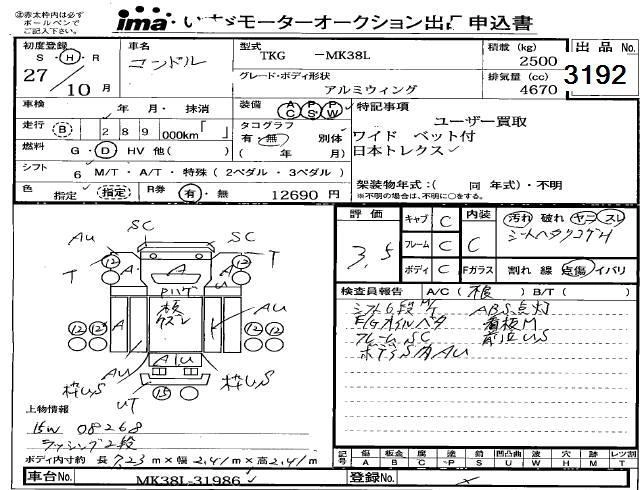 ㊟赤太枠内は必ず
ボールペンで
ご記入下さい。
ima いすゞモーターオークション出品申込書
初度登録 S・H・R 27/10月
車名 コンドル
型式 TKG -MK38L
グレード・ボディ形状 アルミウィング
積載 (kg) 2500
排気量 (cc) 4670
出品 No. 3192
車検 年 月・ 抹消
装備 AC PS PW
特記事項
ユーザー買取
ワイド ベット付
日本トレクス
走行 B 289 000km「 」
タコグラフ 有・無 別体
( 年 月)
燃料 G・D HV 他( )
シフト 6 M/T・A/T・特殊(2ペダル・3ペダル)
架装物年式:( 同 年式)・不明
※不明の場合は、不明に○をする。
色 指定 指定 R券 有・無 12690 円
評価 3.5
キャブ C
フレーム C
ボディ C
内装 C
Fガラス
汚れ 破れ ヤニ スレ
割れ 線 点傷 イバリ
検査員報告 A/C( 根 ) B/T( )
シフト6段 M/T ABS点灯
看板M
フレームSC
AU
SC
SC
AU
T
T
12
12
A
A
A
U
AU
12 12
12 12
A
A U
AU
AU
枠US
枠US
UT
15
上物情報
15W 08268
ラッシング2段
ボディ内寸約 長 723 m×幅 2.41 m×高 2.41 m
記号 傷A 板金B 腐C 塗P 錆S 凹凸曲U 波W 穴H 跡M 欠T レツ割
車台No. MK38L-31986
登録No.